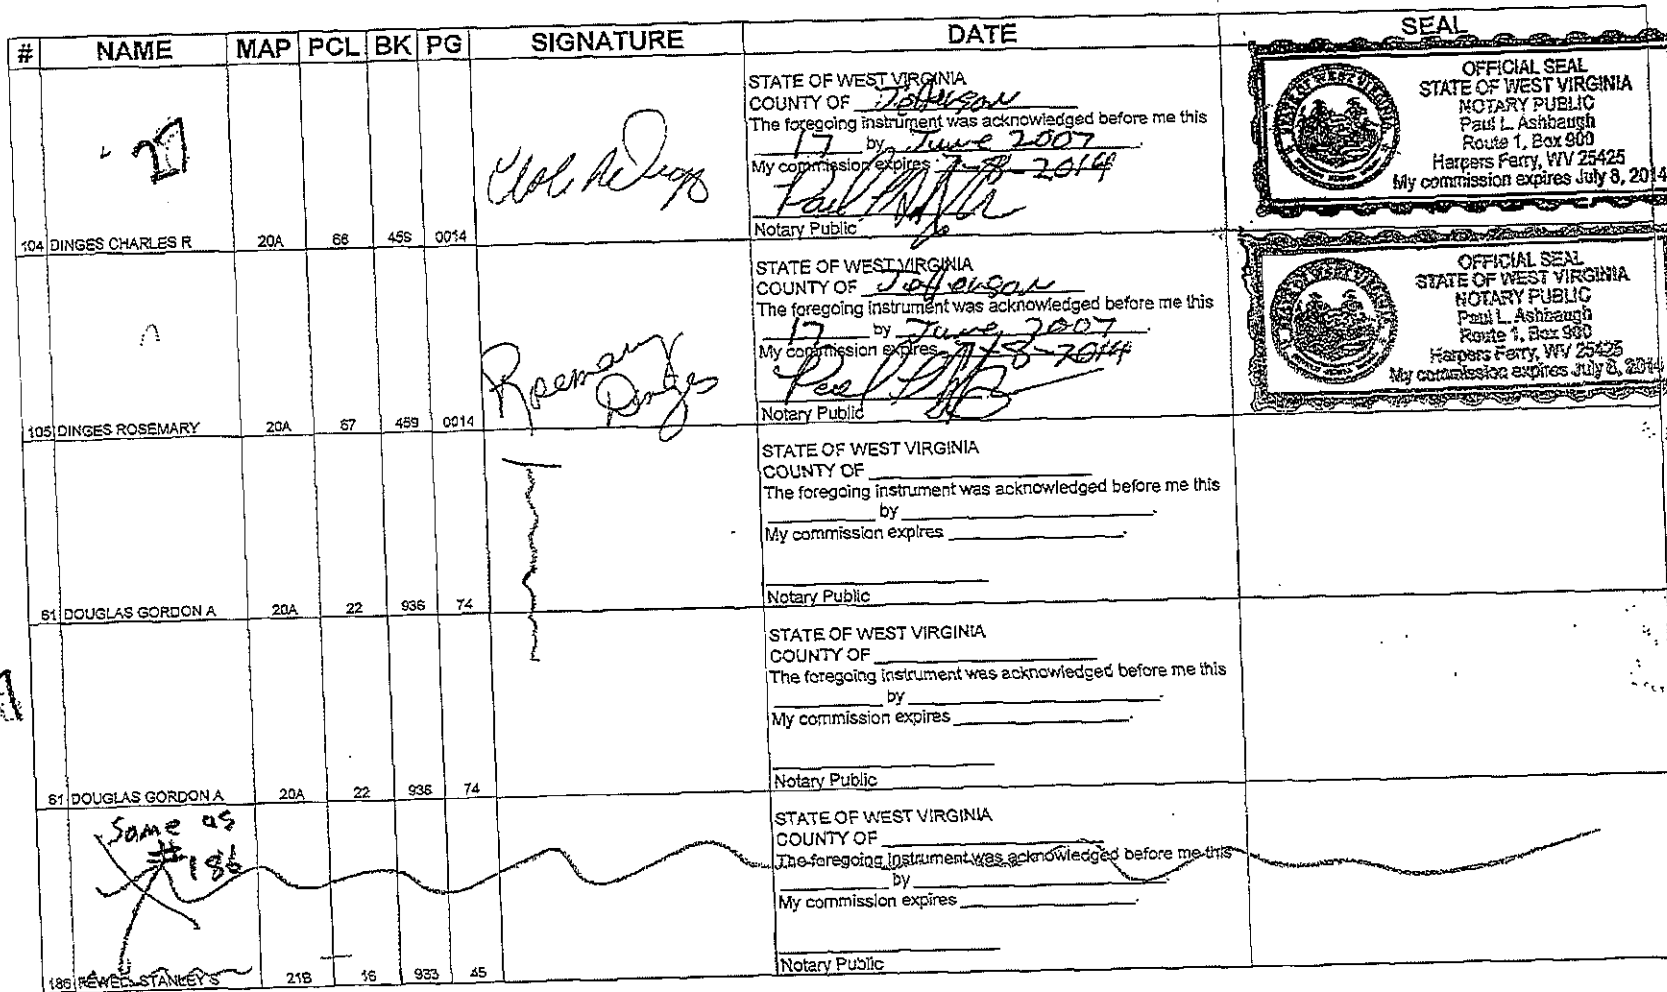 # NAME MAP PCL BK PG SIGNATURE DATE SEAL
STATE OF WEST VIRGINIA
COUNTY OF Jefferson
The foregoing instrument was acknowledged before me this
17 by June 2007.
My commission expires 7-8-2014
Notary Public
OFFICIAL SEAL
STATE OF WEST VIRGINIA
NOTARY PUBLIC
Paul L. Ashbaugh
Route 1, Box 900
Harpers Ferry, WV 25425
My commission expires July 8, 2014
104 DINGES CHARLES R 20A 66 459 0014
Rosemary
Dinges
STATE OF WEST VIRGINIA
COUNTY OF Jefferson
The foregoing instrument was acknowledged before me this
17 by June 2007.
My commission expires 7-8-2014
Notary Public
OFFICIAL SEAL
STATE OF WEST VIRGINIA
NOTARY PUBLIC
Paul L. Ashbaugh
Route 1, Box 900
Harpers Ferry, WV 25425
My commission expires July 8, 2014
105 DINGES ROSEMARY 20A 67 459 0014
STATE OF WEST VIRGINIA
COUNTY OF
The foregoing instrument was acknowledged before me this
by
My commission expires
Notary Public
61 DOUGLAS GORDON A 20A 22 936 74
STATE OF WEST VIRGINIA
COUNTY OF
The foregoing instrument was acknowledged before me this
by
My commission expires
Notary Public
61 DOUGLAS GORDON A 20A 22 936 74
Same as
# 186
STATE OF WEST VIRGINIA
COUNTY OF
The foregoing instrument was acknowledged before me this
by
My commission expires
Notary Public
186 STANLEY S 21B 16 933 45